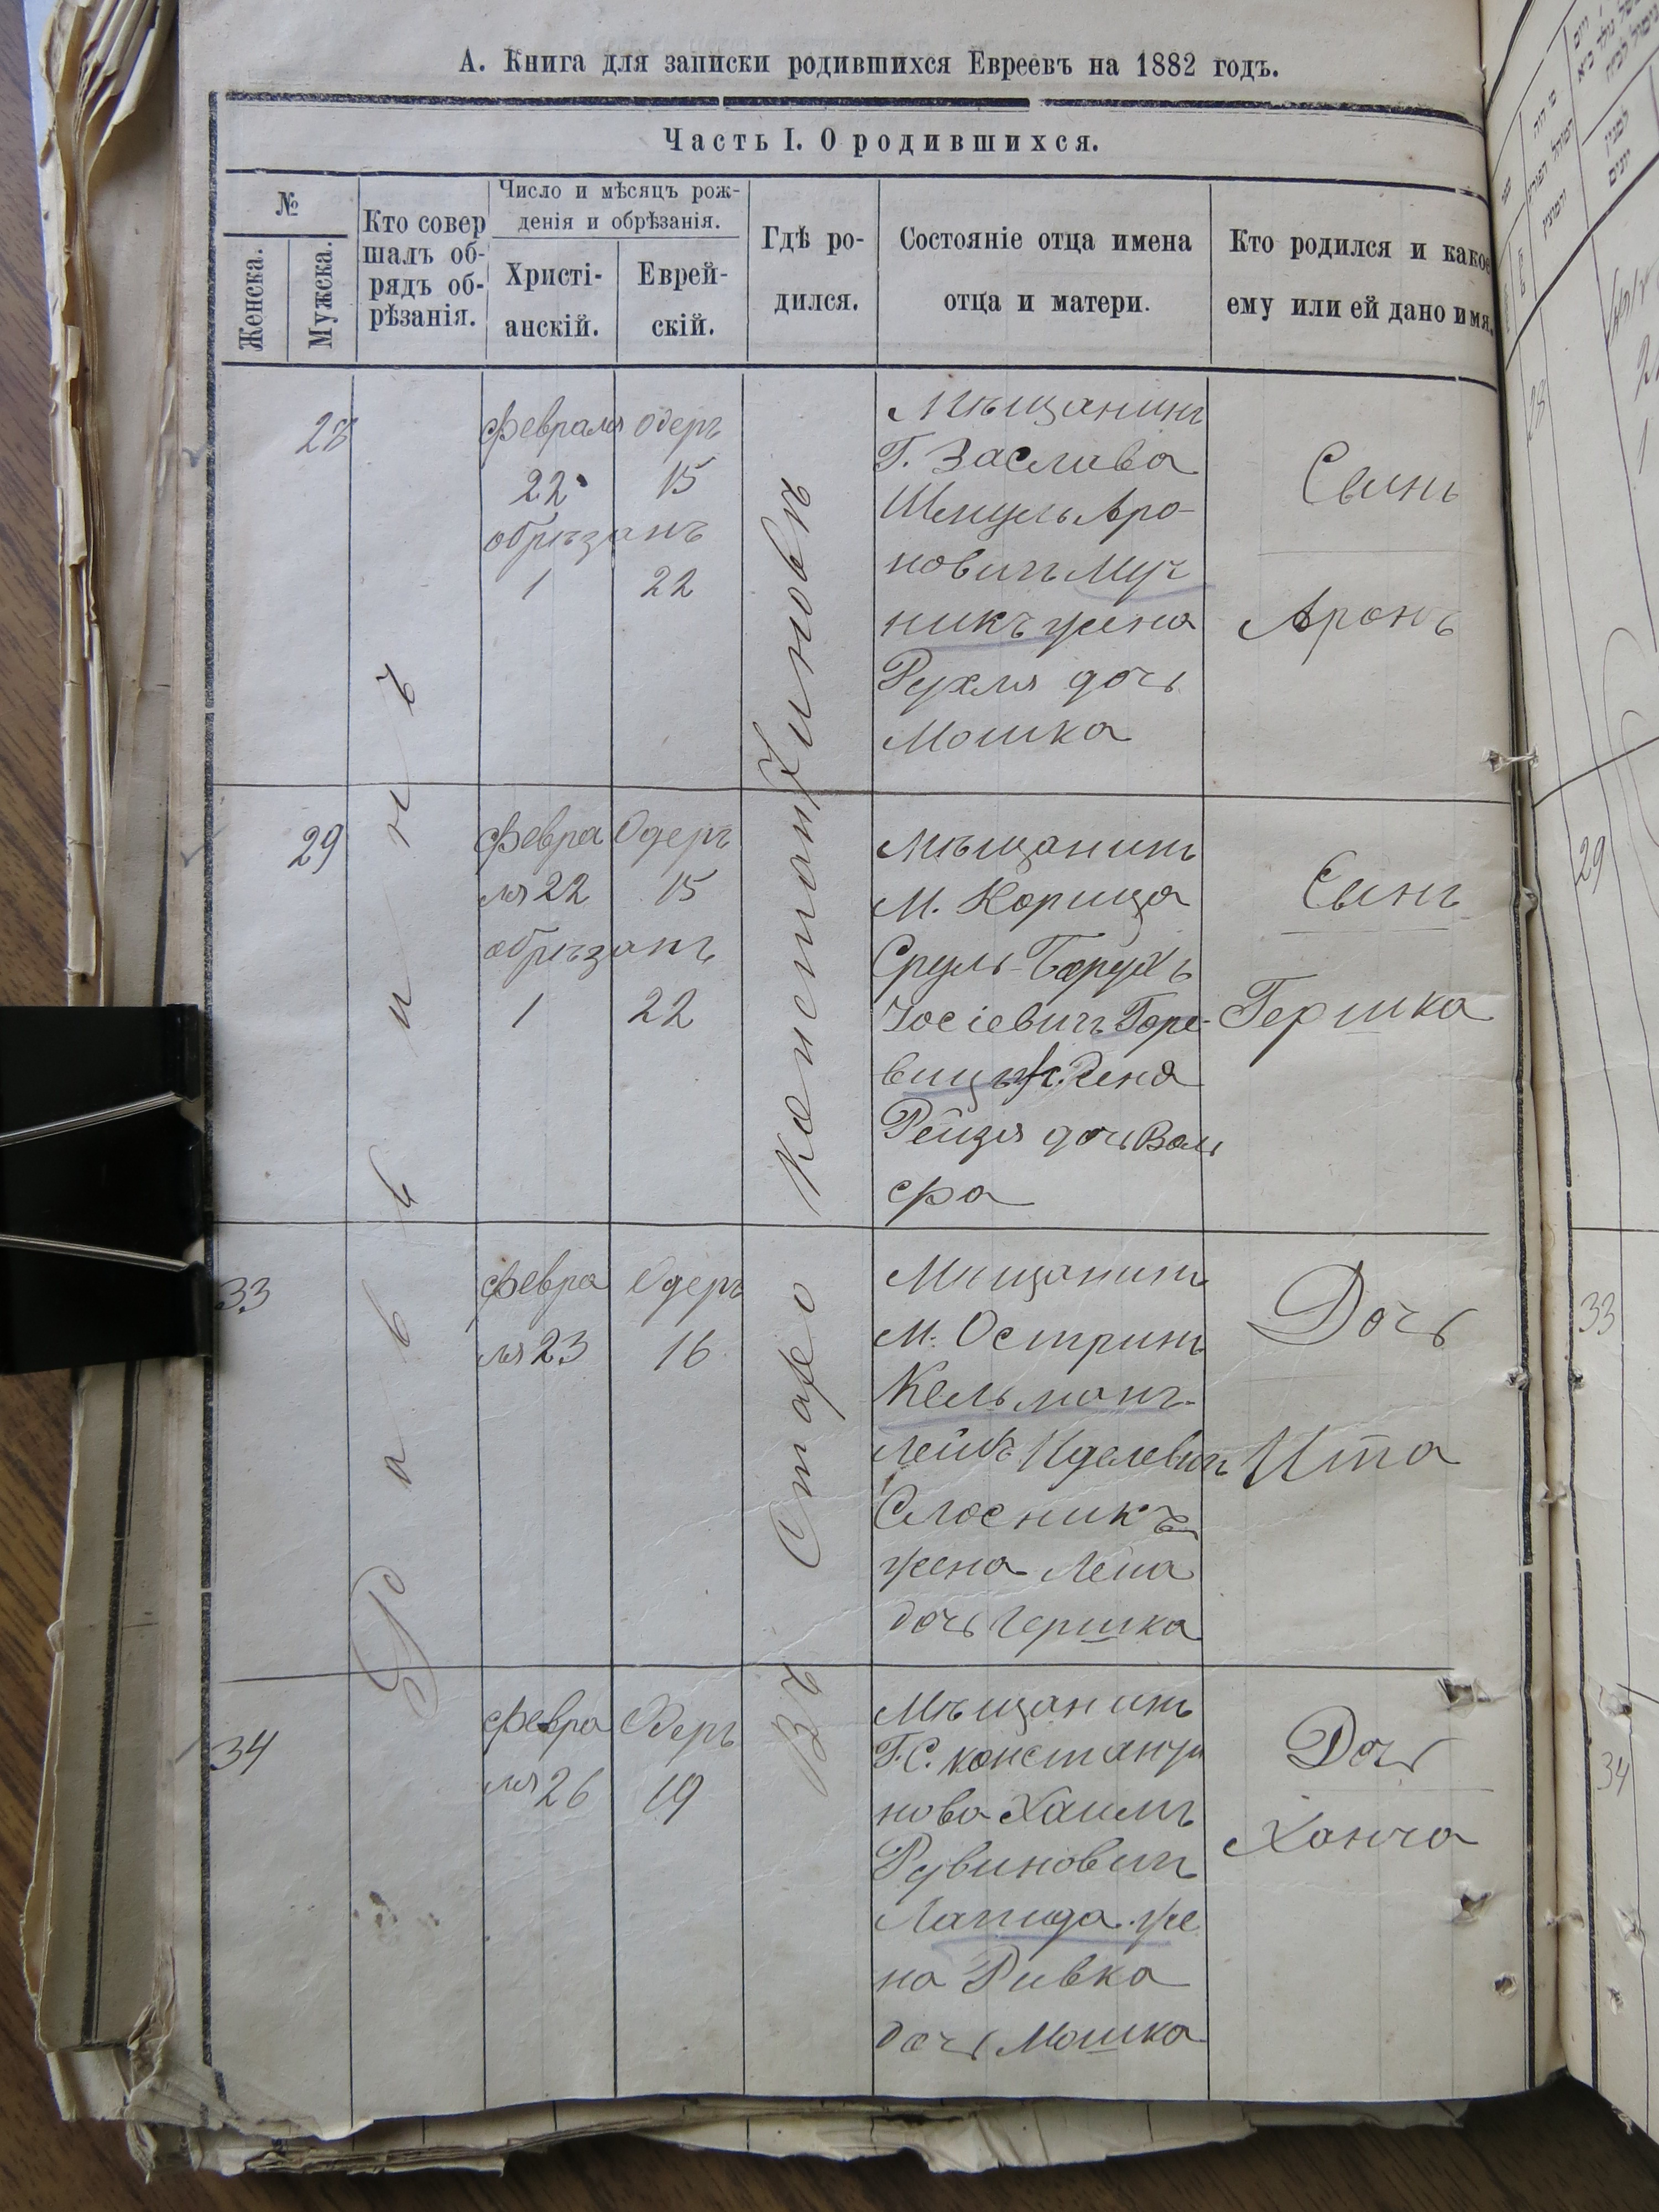 А. Книга для записки родившихся Евреевъ на 1882 годъ.
Часть I. О родившихся.
№
Женска.
Мужска.
Кто совер
шалъ об-
рядъ об-
рѣзанія.
Число и мѣсяцъ рож-
денія и обрѣзанія.
Христі-
анскій.
Еврей-
скій.
Гдѣ ро-
дился.
Состояніе отца имена
отца и матери.
Кто родился и какое
ему или ей дано имя.
Раввинъ
Въ Старо Константиновѣ
28
февраля Одеръ
22 15
обрѣзанъ
1 22
Мѣщанинъ
Г. Заслава
Шенцель Аро-
новичъ Муч
никъ жена
Рухля дочь
Мошка
Сынъ
Аронъ
29
февра Одеръ
ля 22 15
обрѣзанъ
1 22
Мѣщанинъ
М. Корица
Сруль-Барухъ
Іосіевичъ Горе-
вицъ Жена
Рейзя дочь Воль
фра
Сынъ
Гершка
33
февра Одеръ
ля 23 16
Мѣщанинъ
М. Остринъ
Кельманъ-
Лейбъ Иделевичъ
Слосникъ
жена Леиа
дочь Гершка
Дочь
Ита
34
февра Одеръ
ля 26 19
Мѣщанинъ
Г. С. константи
нова Хаимъ
Рувиновичъ
Лапида же
на Ривка
дочь Мошка
Дочь
Ханча
28
29
33
34